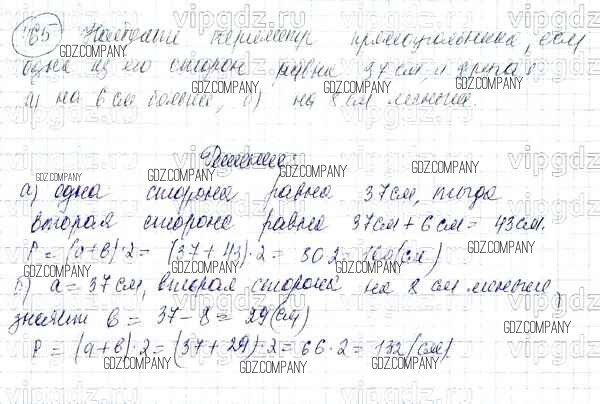 765 Найти периметр прямоугольника, если
одна из его сторон равна 37 см, а другая
а) на 6 см больше, б) на 8 см меньше.
Решение:
а) одна сторона равна 37 см, тогда
вторая сторона равна 37 см + 6 см = 43 см.
P = (a+b)·2 = (37+43)·2 = 80·2 = 160 (см)
б) a = 37 см, вторая сторона на 8 см меньше,
значит b = 37 - 8 = 29 (см)
P = (a+b)·2 = (37+29)·2 = 66·2 = 132 (см)
vipgdz.ru
GDZ.COMPANY